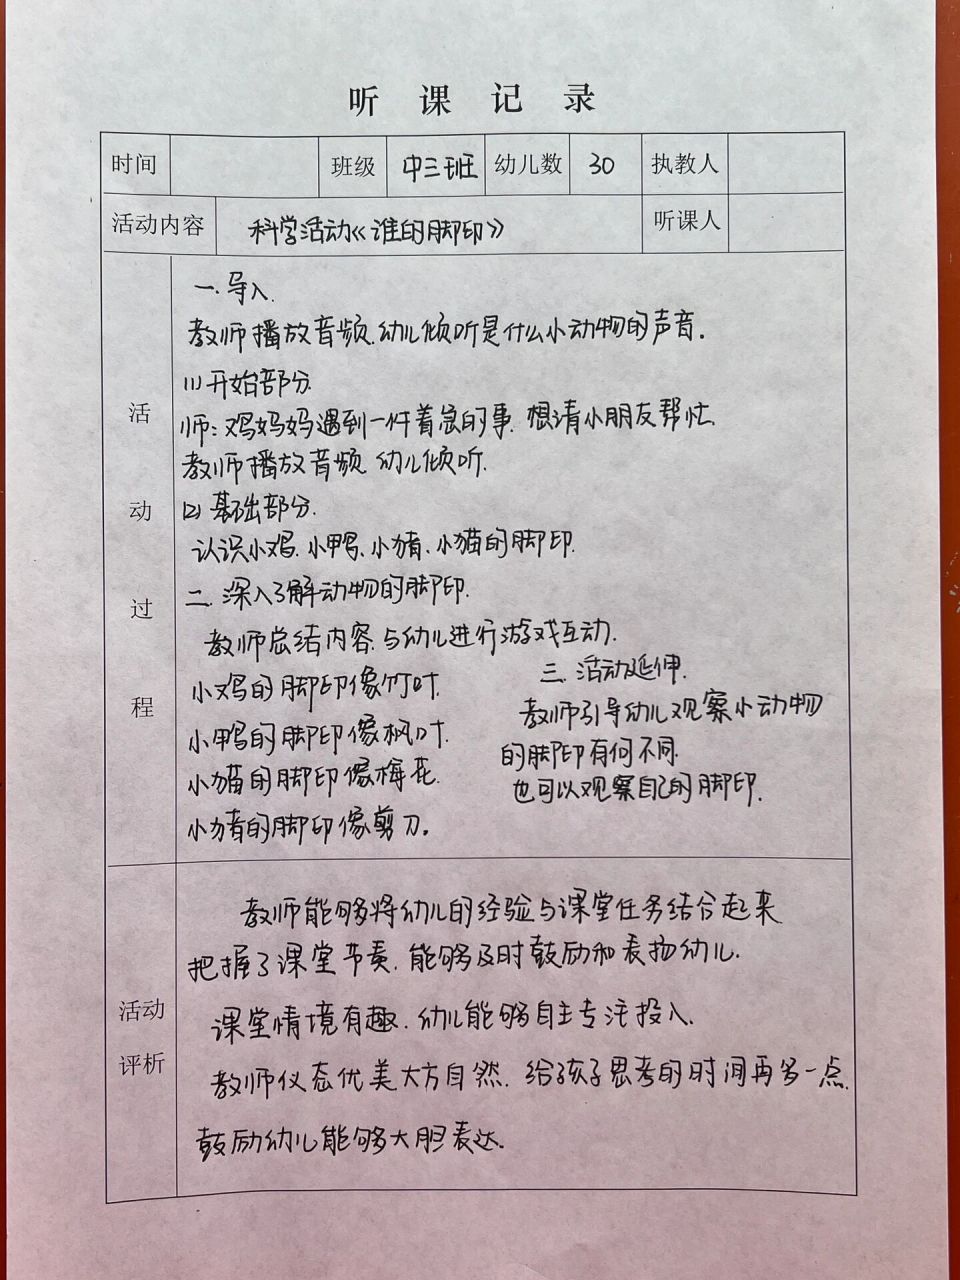 听课记录
时间 班级 中三班 幼儿数 30 执教人
活动内容 科学活动《谁的脚印》 听课人
活动过程
一.导入.
教师播放音频.幼儿倾听是什么小动物的声音.
(1)开始部分.
师:鸡妈妈遇到一件着急的事.想请小朋友帮忙.
教师播放音频 幼儿倾听.
(2)基础部分.
认识小鸡、小鸭、小猪、小猫的脚印.
二.深入了解动物的脚印.
教师总结内容.与幼儿进行游戏互动.
小鸡的脚印像竹叶.
小鸭的脚印像枫叶.
小猫的脚印像梅花.
小猪的脚印像剪刀。
三.活动延伸.
教师引导幼儿观察小动物
的脚印有何不同.
也可以观察自己的脚印.
活动评析
教师能够将幼儿的经验与课堂任务结合起来
把握了课堂节奏.能够及时鼓励和表扬幼儿.
课堂情境有趣.幼儿能够自主专注投入.
教师仪态优美大方自然.给孩子思考的时间再多一点.
鼓励幼儿能够大胆表达.